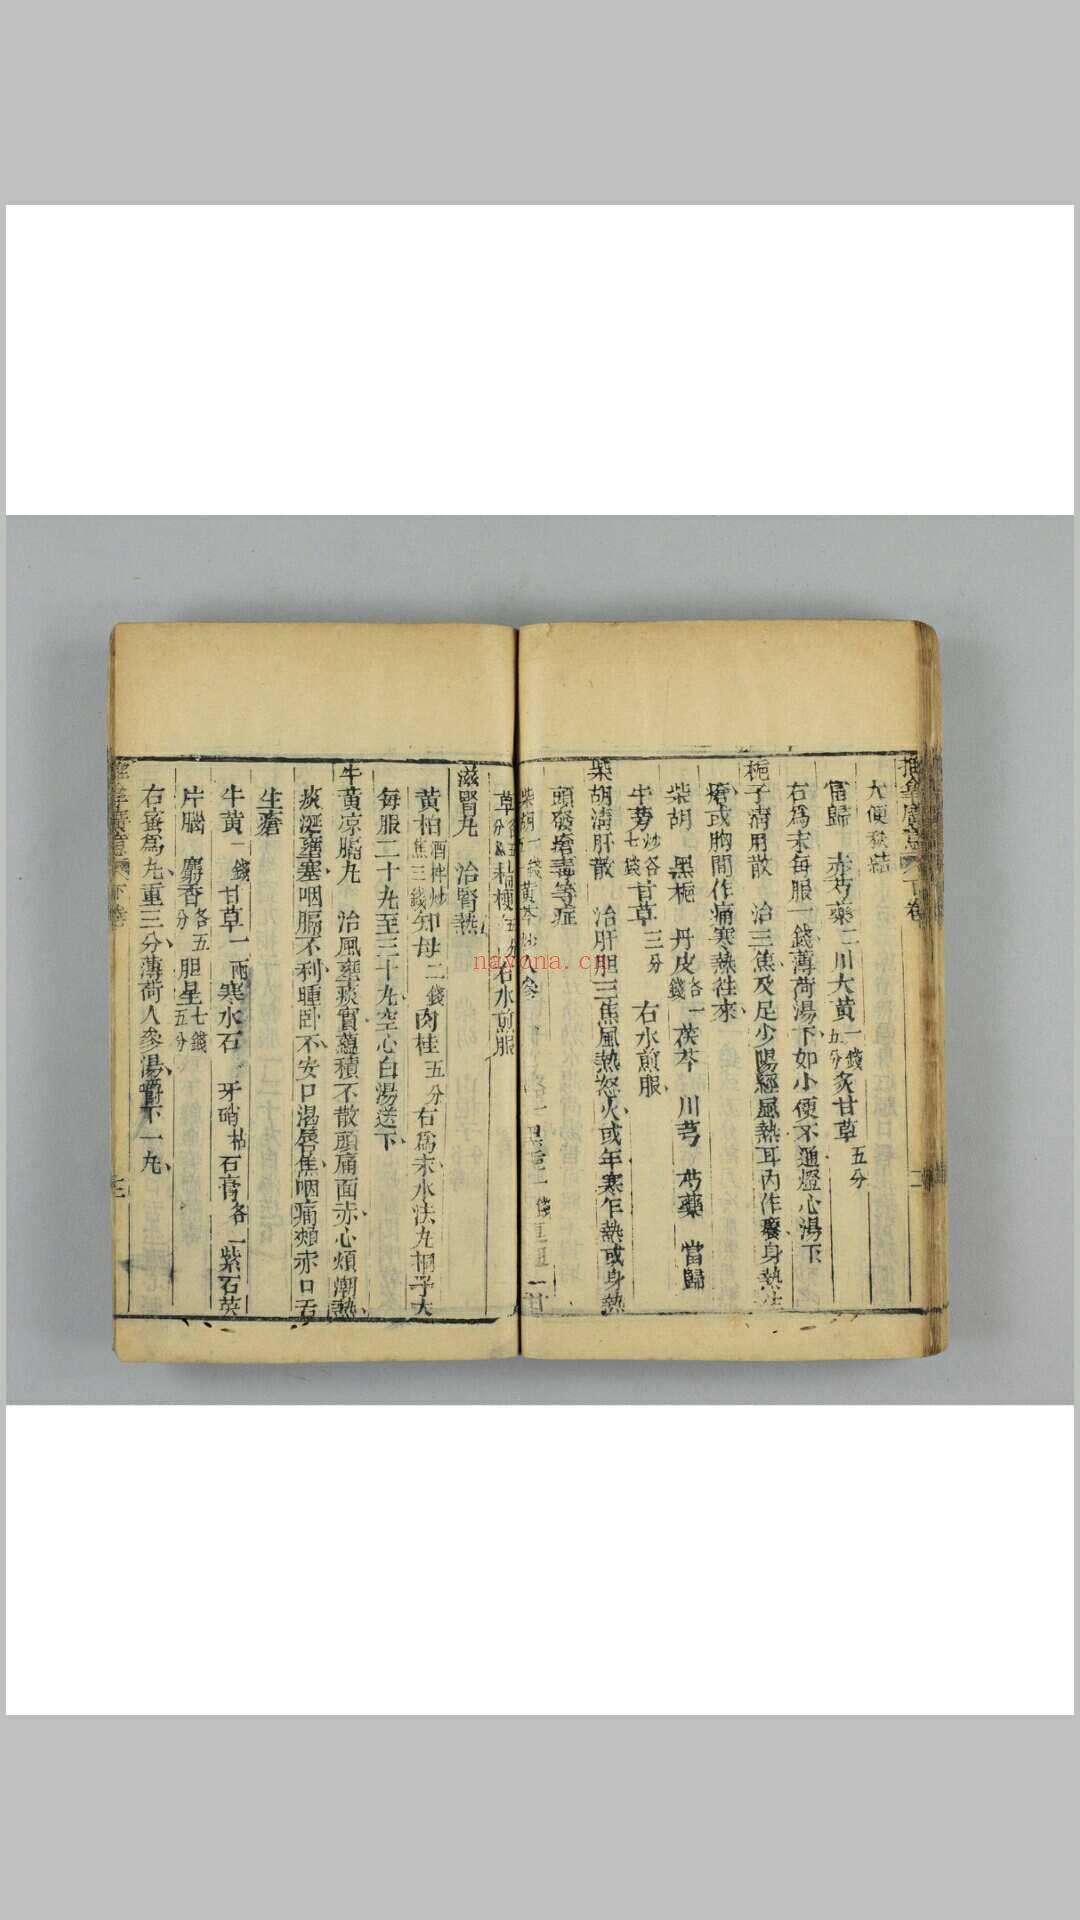 大便秘結
當歸 赤芍藥 二 川大黃 一錢五分 炙甘草 五分
右為末每服一錢薄荷湯下如小便不通燈心湯下
梔子清肝散 治三焦及足少陽經風熱耳內作癢身熱生
瘡或胸間作痛寒熱往來
柴胡 黑梔 丹皮 各一錢 茯苓 川芎 芍藥 當歸
牛蒡 炒各七錢 甘草 三分 右水煎服
柴胡清肝散 治肝胆三焦風熱怒火或乍寒乍熱或身熱
頭發瘡毒等症
柴胡 一錢 黃芩 炒 人參
右水煎服
滋腎丸 治腎熱
黃栢 酒拌炒焦三錢 知母 二錢 肉桂 五分 右為末水法丸桐子大
每服二十丸至三十丸空心白湯送下
牛黃凉膈丸 治風壅痰實蘊積不散頭痛面赤心煩潮熱
痰涎壅塞咽膈不利睡卧不安口渴唇焦咽痛頰赤口舌
生瘡
牛黃 一錢 甘草 一兩 寒水石 牙硝 枯 石膏 各一 紫石英
片腦 麝香 各五分 胆星 七錢五分
右蜜為丸重三分薄荷人參湯嚼下一丸
navona.cn